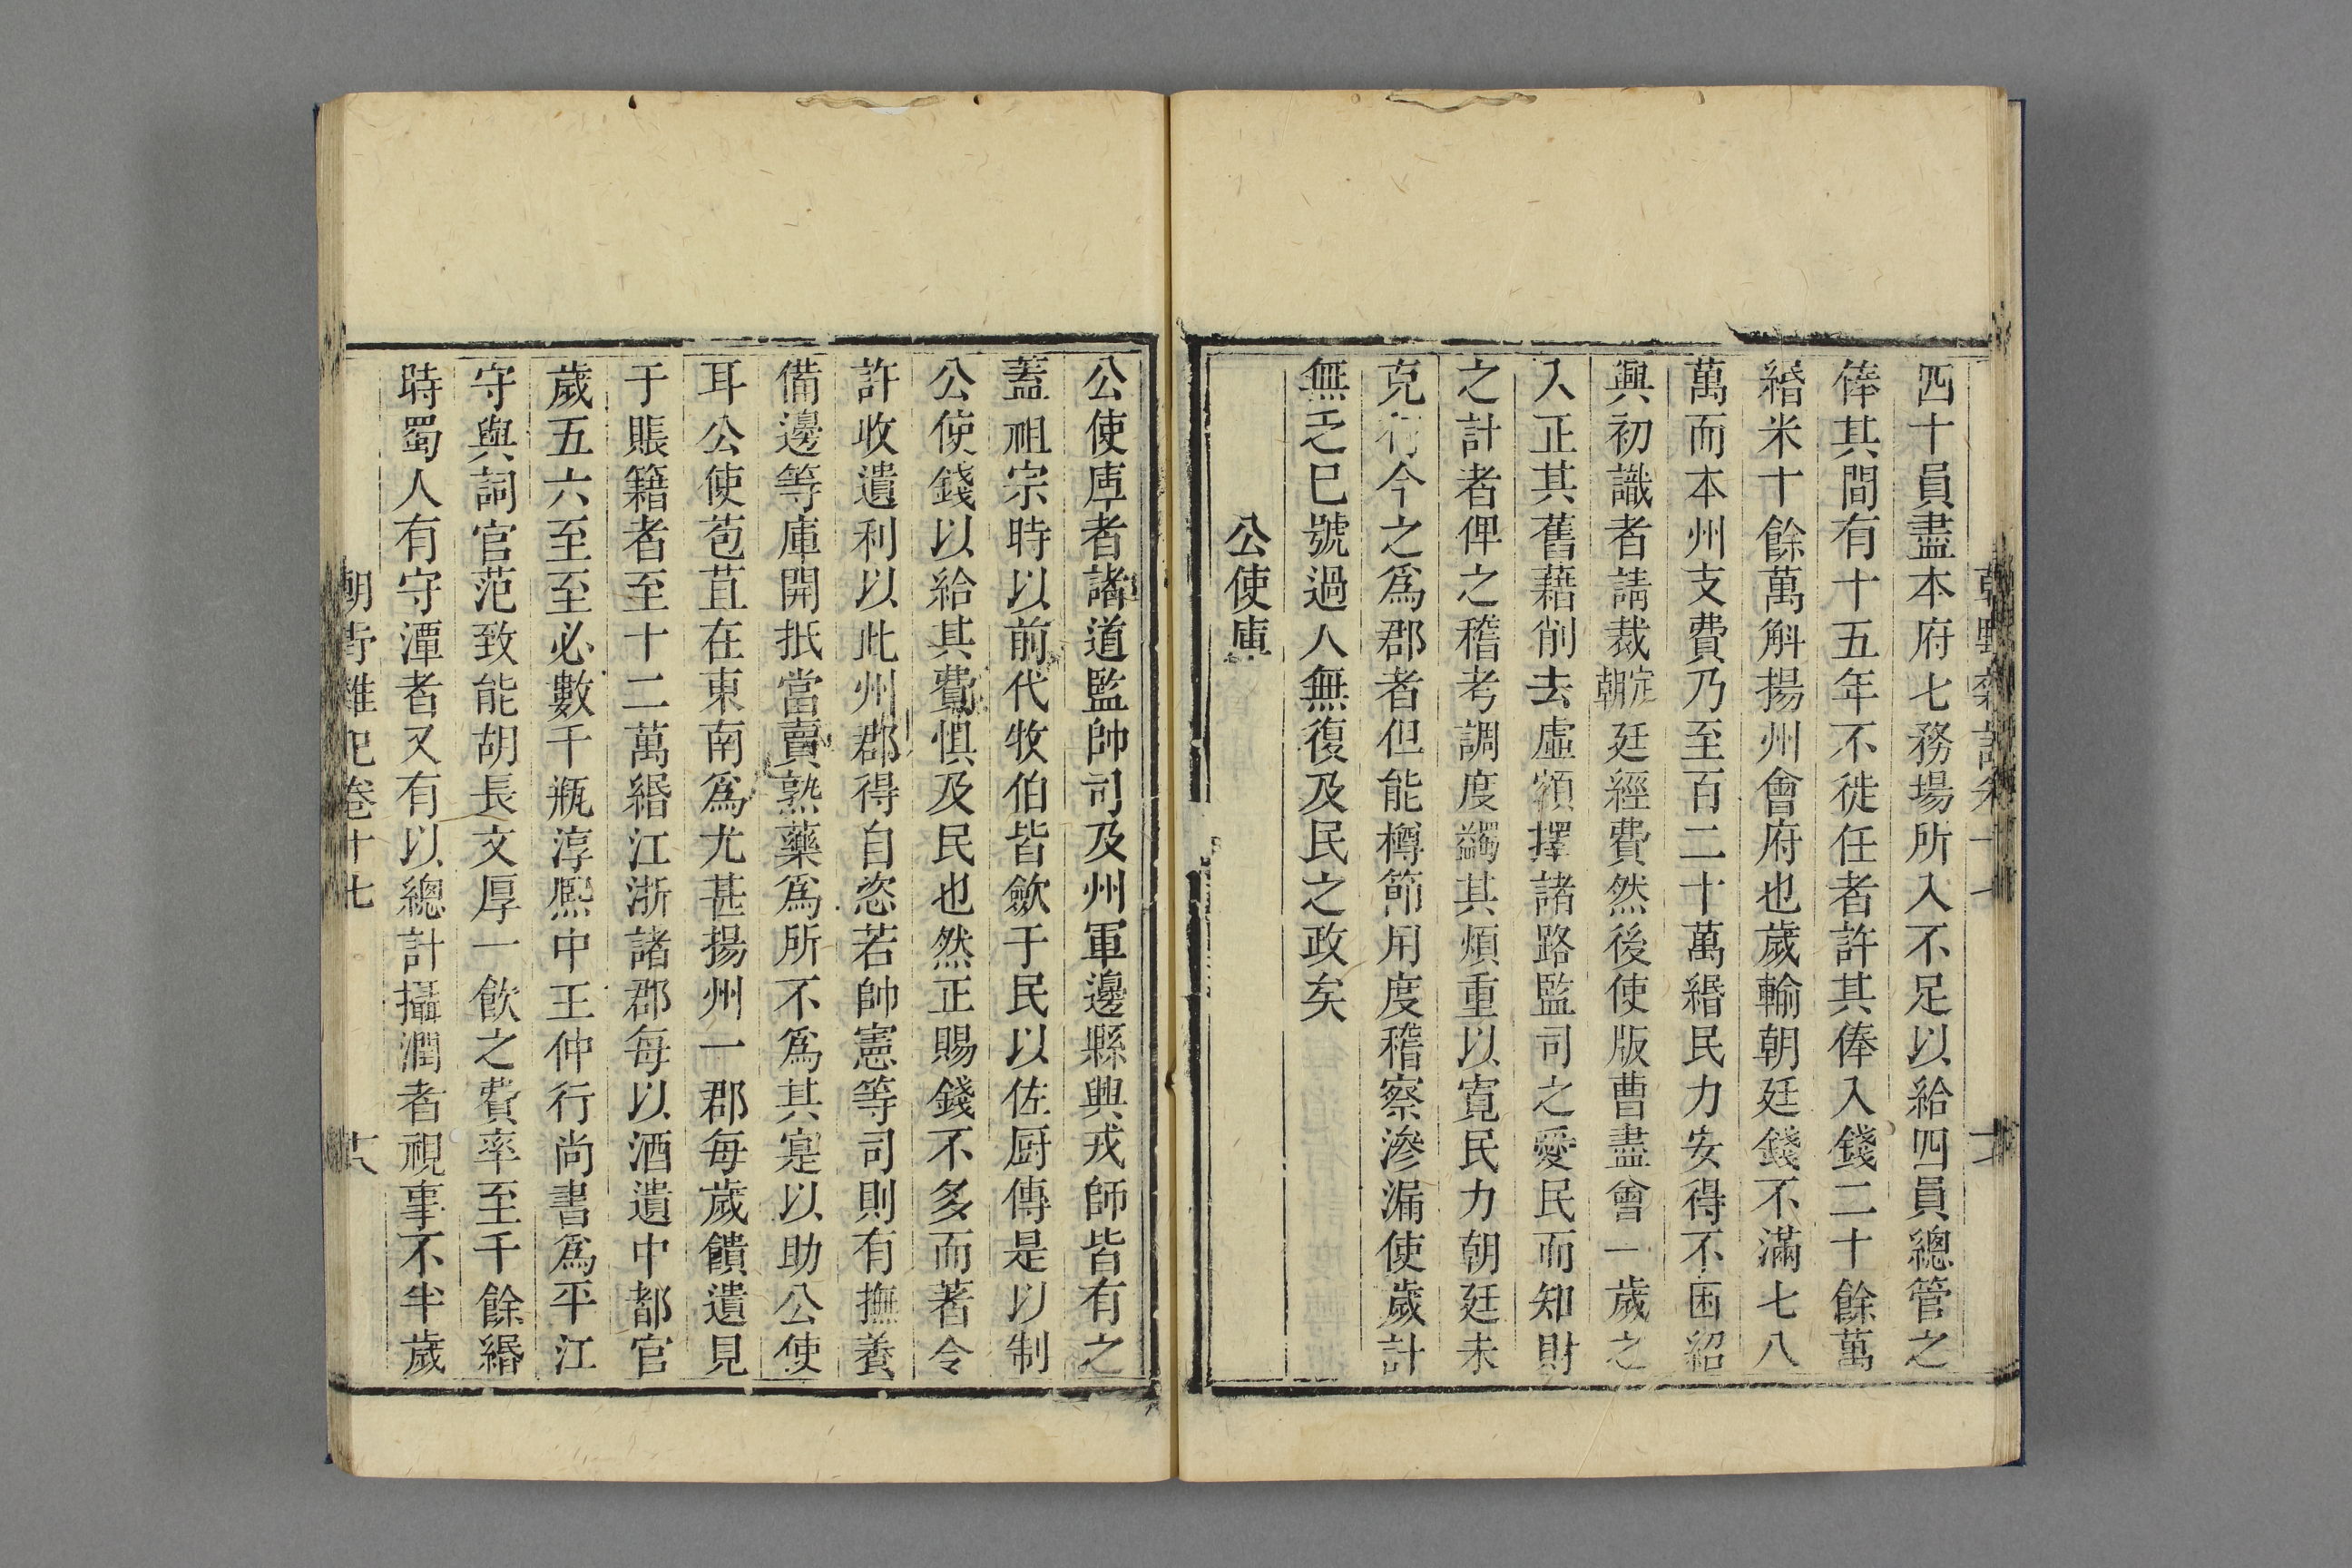 四十員盡本府七務場所入不足以給四員總管之
俸其間有十五年不徙任者許其俸入錢二十餘萬
緡米十餘萬斛揚州會府也歲輸朝廷錢不滿七八
萬而本州支費乃至百二十萬緡民力安得不困紹
興初識者請裁定朝廷經費然後使版曹盡會一歲之
入正其舊藉削去虛額擇諸路監司之愛民而知財
之計者俾之稽考調度蠲其煩重以寬民力朝廷未
克行今之爲郡者但能樽節用度稽察滲漏使歲計
無乏已號過人無復及民之政矣
公使庫
公使庫者諸道監帥司及州軍邊縣與戎師皆有之
蓋祖宗時以前代牧伯皆歛于民以佐厨傳是以制
公使錢以給其費惧及民也然正賜錢不多而著令
許收遺利以此州郡得自恣若帥憲等司則有撫養
備邊等庫開抵當賣熟藥爲所不爲其寔以助公使
耳公使苞苴在東南爲尤甚揚州一郡每歲饋遺見
于賬籍者至十二萬緡江浙諸郡每以酒遺中都官
歲五六至至必數千瓶淳熙中王仲行尚書爲平江
守與詞官范致能胡長文厚一飲之費率至千餘緡
時蜀人有守潭者又有以總計攝潤者視事不半歲
朝野雜記卷十七 十八